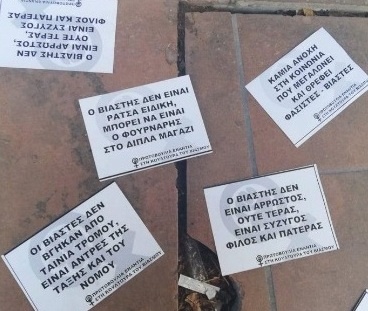 Ο ΒΙΑΣΤΗΣ ΔΕΝ
ΕΙΝΑΙ ΑΡΡΩΣΤΟΣ,
ΟΥΤΕ ΤΕΡΑΣ,
ΕΙΝΑΙ ΣΥΖΥΓΟΣ
ΦΙΛΟΣ ΚΑΙ ΠΑΤΕΡΑΣ
ΠΡΩΤΟΒΟΥΛΙΑ ΕΝΑΝΤΙΑ
ΣΤΗ ΚΟΥΛΤΟΥΡΑ ΤΟΥ ΒΙΑΣΜΟΥ
ΚΑΜΙΑ ΑΝΟΧΗ
ΣΤΗ ΚΟΙΝΩΝΙΑ
ΠΟΥ ΜΕΓΑΛΩΝΕΙ
ΚΑΙ ΘΡΕΦΕΙ
ΦΑΣΙΣΤΕΣ - ΒΙΑΣΤΕΣ
ΠΡΩΤΟΒΟΥΛΙΑ ΕΝΑΝΤΙΑ
ΣΤΗ ΚΟΥΛΤΟΥΡΑ ΤΟΥ ΒΙΑΣΜΟΥ
Ο ΒΙΑΣΤΗΣ ΔΕΝ ΕΙΝΑΙ
ΡΑΤΣΑ ΕΙΔΙΚΗ,
ΜΠΟΡΕΙ ΝΑ ΕΙΝΑΙ
Ο ΦΟΥΡΝΑΡΗΣ
ΣΤΟ ΔΙΠΛΑ ΜΑΓΑΖΙ
ΠΡΩΤΟΒΟΥΛΙΑ ΕΝΑΝΤΙΑ
ΣΤΗ ΚΟΥΛΤΟΥΡΑ ΤΟΥ ΒΙΑΣΜΟΥ
ΟΙ ΒΙΑΣΤΕΣ ΔΕΝ
ΒΓΗΚΑΝ ΑΠΟ
ΤΑΙΝΙΑ ΤΡΟΜΟΥ,
ΕΙΝΑΙ ΑΝΤΡΕΣ ΤΗΣ
ΤΑΞΗΣ ΚΑΙ ΤΟΥ
ΝΟΜΟΥ
ΠΡΩΤΟΒΟΥΛΙΑ ΕΝΑΝΤΙΑ
ΣΤΗ ΚΟΥΛΤΟΥΡΑ ΤΟΥ ΒΙΑΣΜΟΥ
Ο ΒΙΑΣΤΗΣ ΔΕΝ
ΕΙΝΑΙ ΑΡΡΩΣΤΟΣ,
ΟΥΤΕ ΤΕΡΑΣ,
ΕΙΝΑΙ ΣΥΖΥΓΟΣ
ΦΙΛΟΣ ΚΑΙ ΠΑΤΕΡΑΣ
ΠΡΩΤΟΒΟΥΛΙΑ ΕΝΑΝΤΙΑ
ΣΤΗ ΚΟΥΛΤΟΥΡΑ ΤΟΥ ΒΙΑΣΜΟΥ